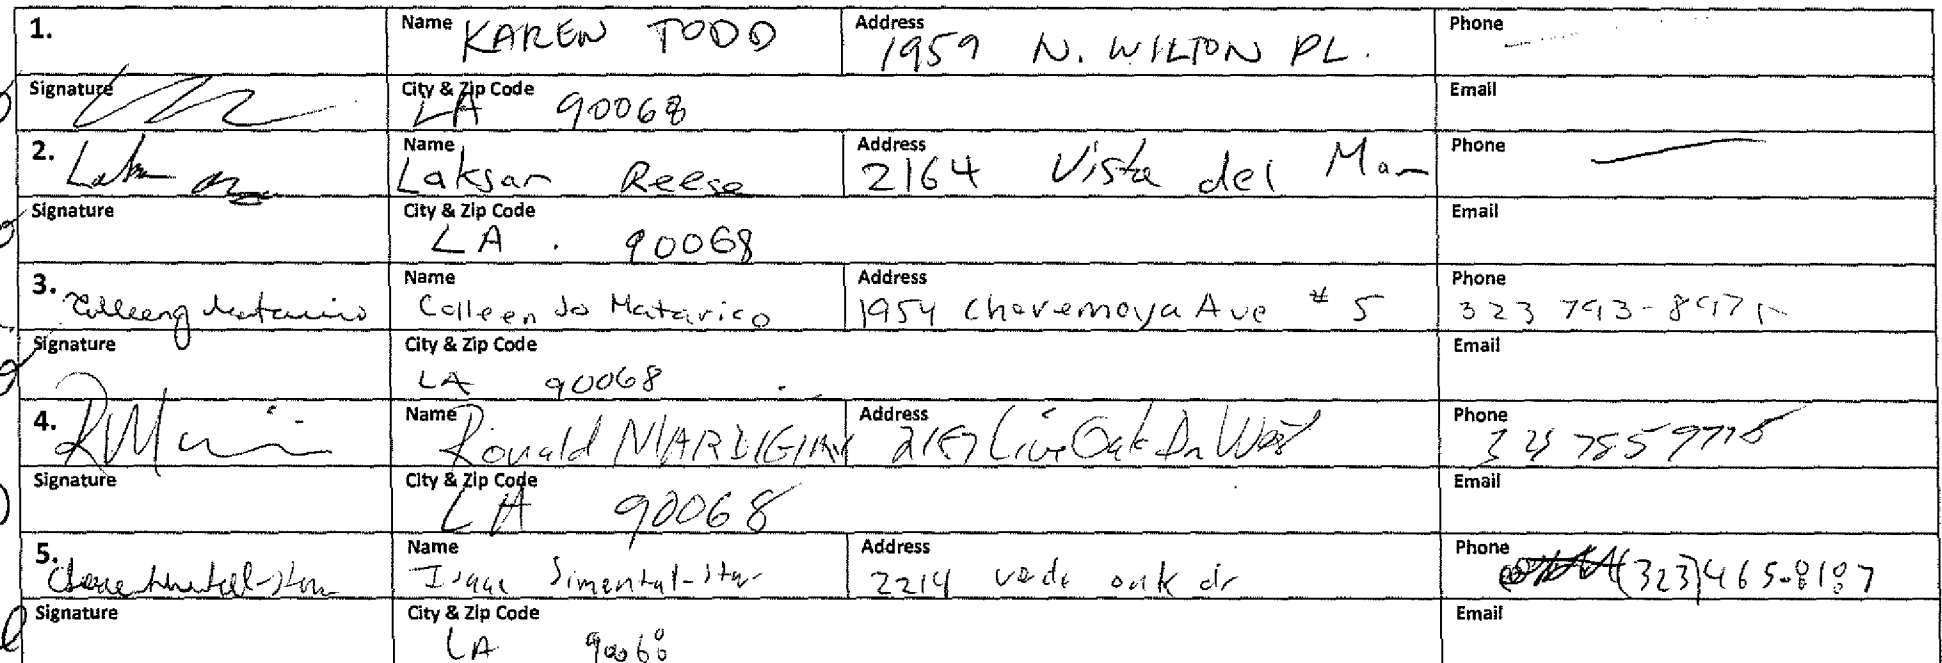 1. Name KAREN TODD Address 1959 N. WILTON PL. Phone
Signature City & Zip Code LA 90068 Email
2. Name Laksan Reese Address 2164 Vista del Mar Phone
Signature City & Zip Code LA . 90068 Email
3. Name Colleen Jo Matarico Address 1954 Chevemoya Ave # 5 Phone 323 793-897
Signature City & Zip Code LA 90068 Email
4. Name Ronald MARDIGIAN Address Live Oak Dr West Phone
Signature City & Zip Code LA 90068 Email
5. Name Isaac Simental-Star Address 2214 vede oak dr Phone (323)465-8187
Signature City & Zip Code LA 90068 Email